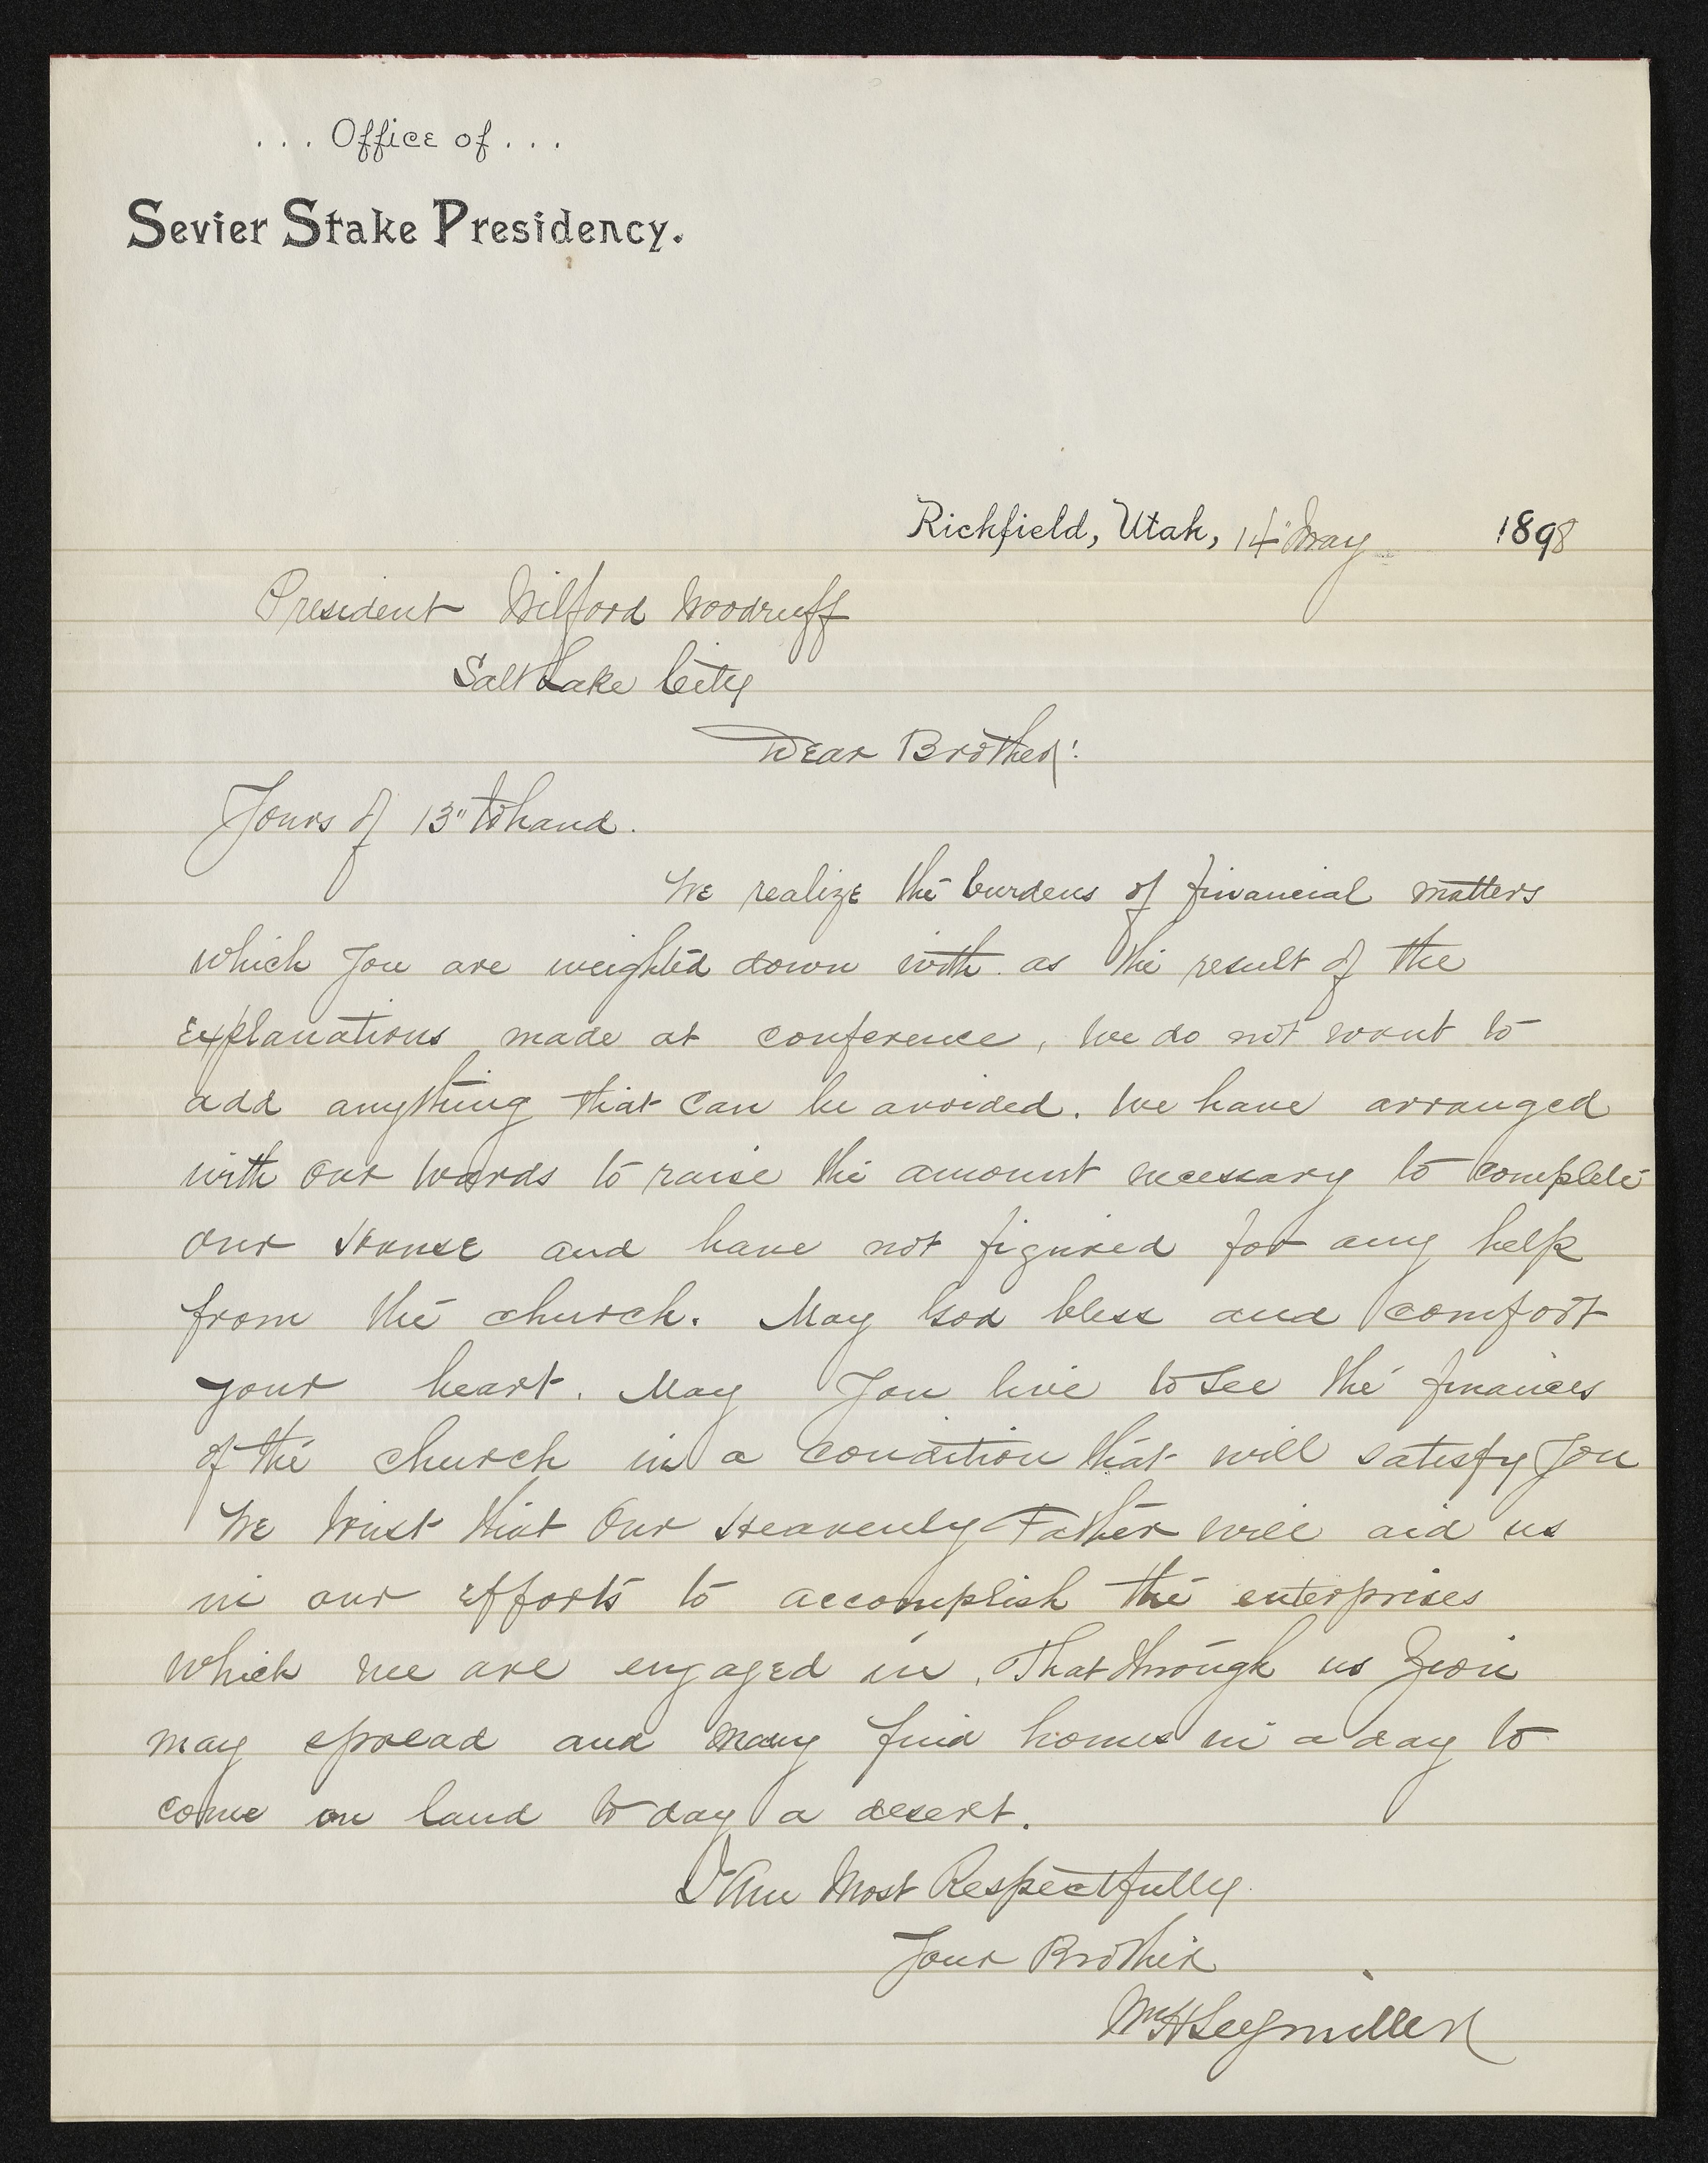 ... Office of ...
Sevier Stake Presidency.
Richfield, Utah, 14" May 1898
President Wilford Woodruff
Salt Lake City
Dear Brother!
Yours of 13" to hand.
We realize the burdens of financial matters
which you are weighted down with. as the result of the
explanations made at conference, we do not want to
add anything that can be avoided. We have arranged
with our wards to raise the amount necessary to complete
our House and have not figured for any help
from the church. May God bless and comfort
your heart. May you live to see the finances
of the church in a condition that will satisfy you
We trust that Our Heavenly Father will aid us
in our efforts to accomplish the enterprises
which we are engaged in, That through us Zion
may spread and many find homes in a day to
come on land to day a desert.
I Am Most Respectfully.
Your Brother
Wm H Seegmiller